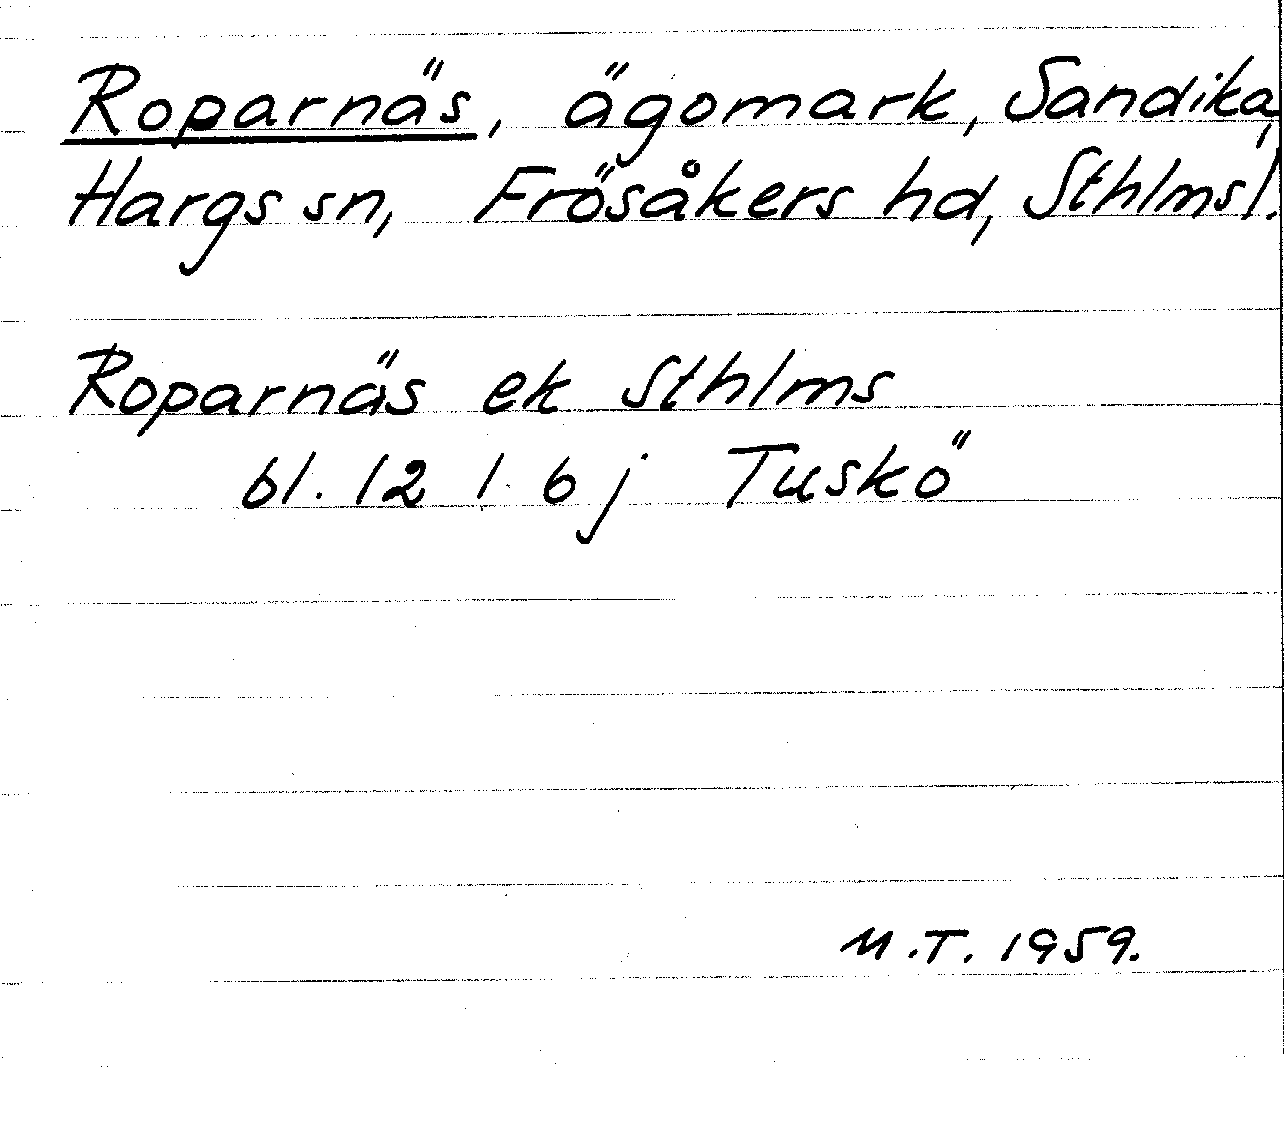 Roparnäs, ägomark, Sandika,
Hargs sn, Frösåkers hd, Sthlms l.
Roparnäs ek Sthlms
bl. 12 I 6 j Tuskö
M.T. 1959.